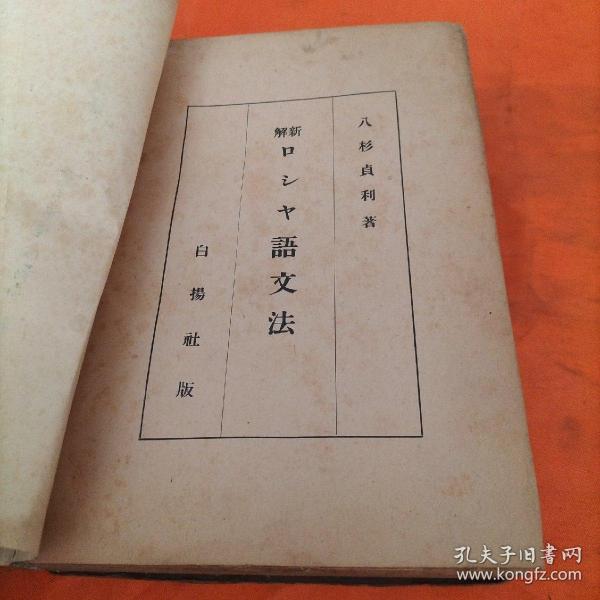 八杉貞利著
新解
ロシヤ語文法
白揚社版
孔夫子旧书网
www.kongfz.com